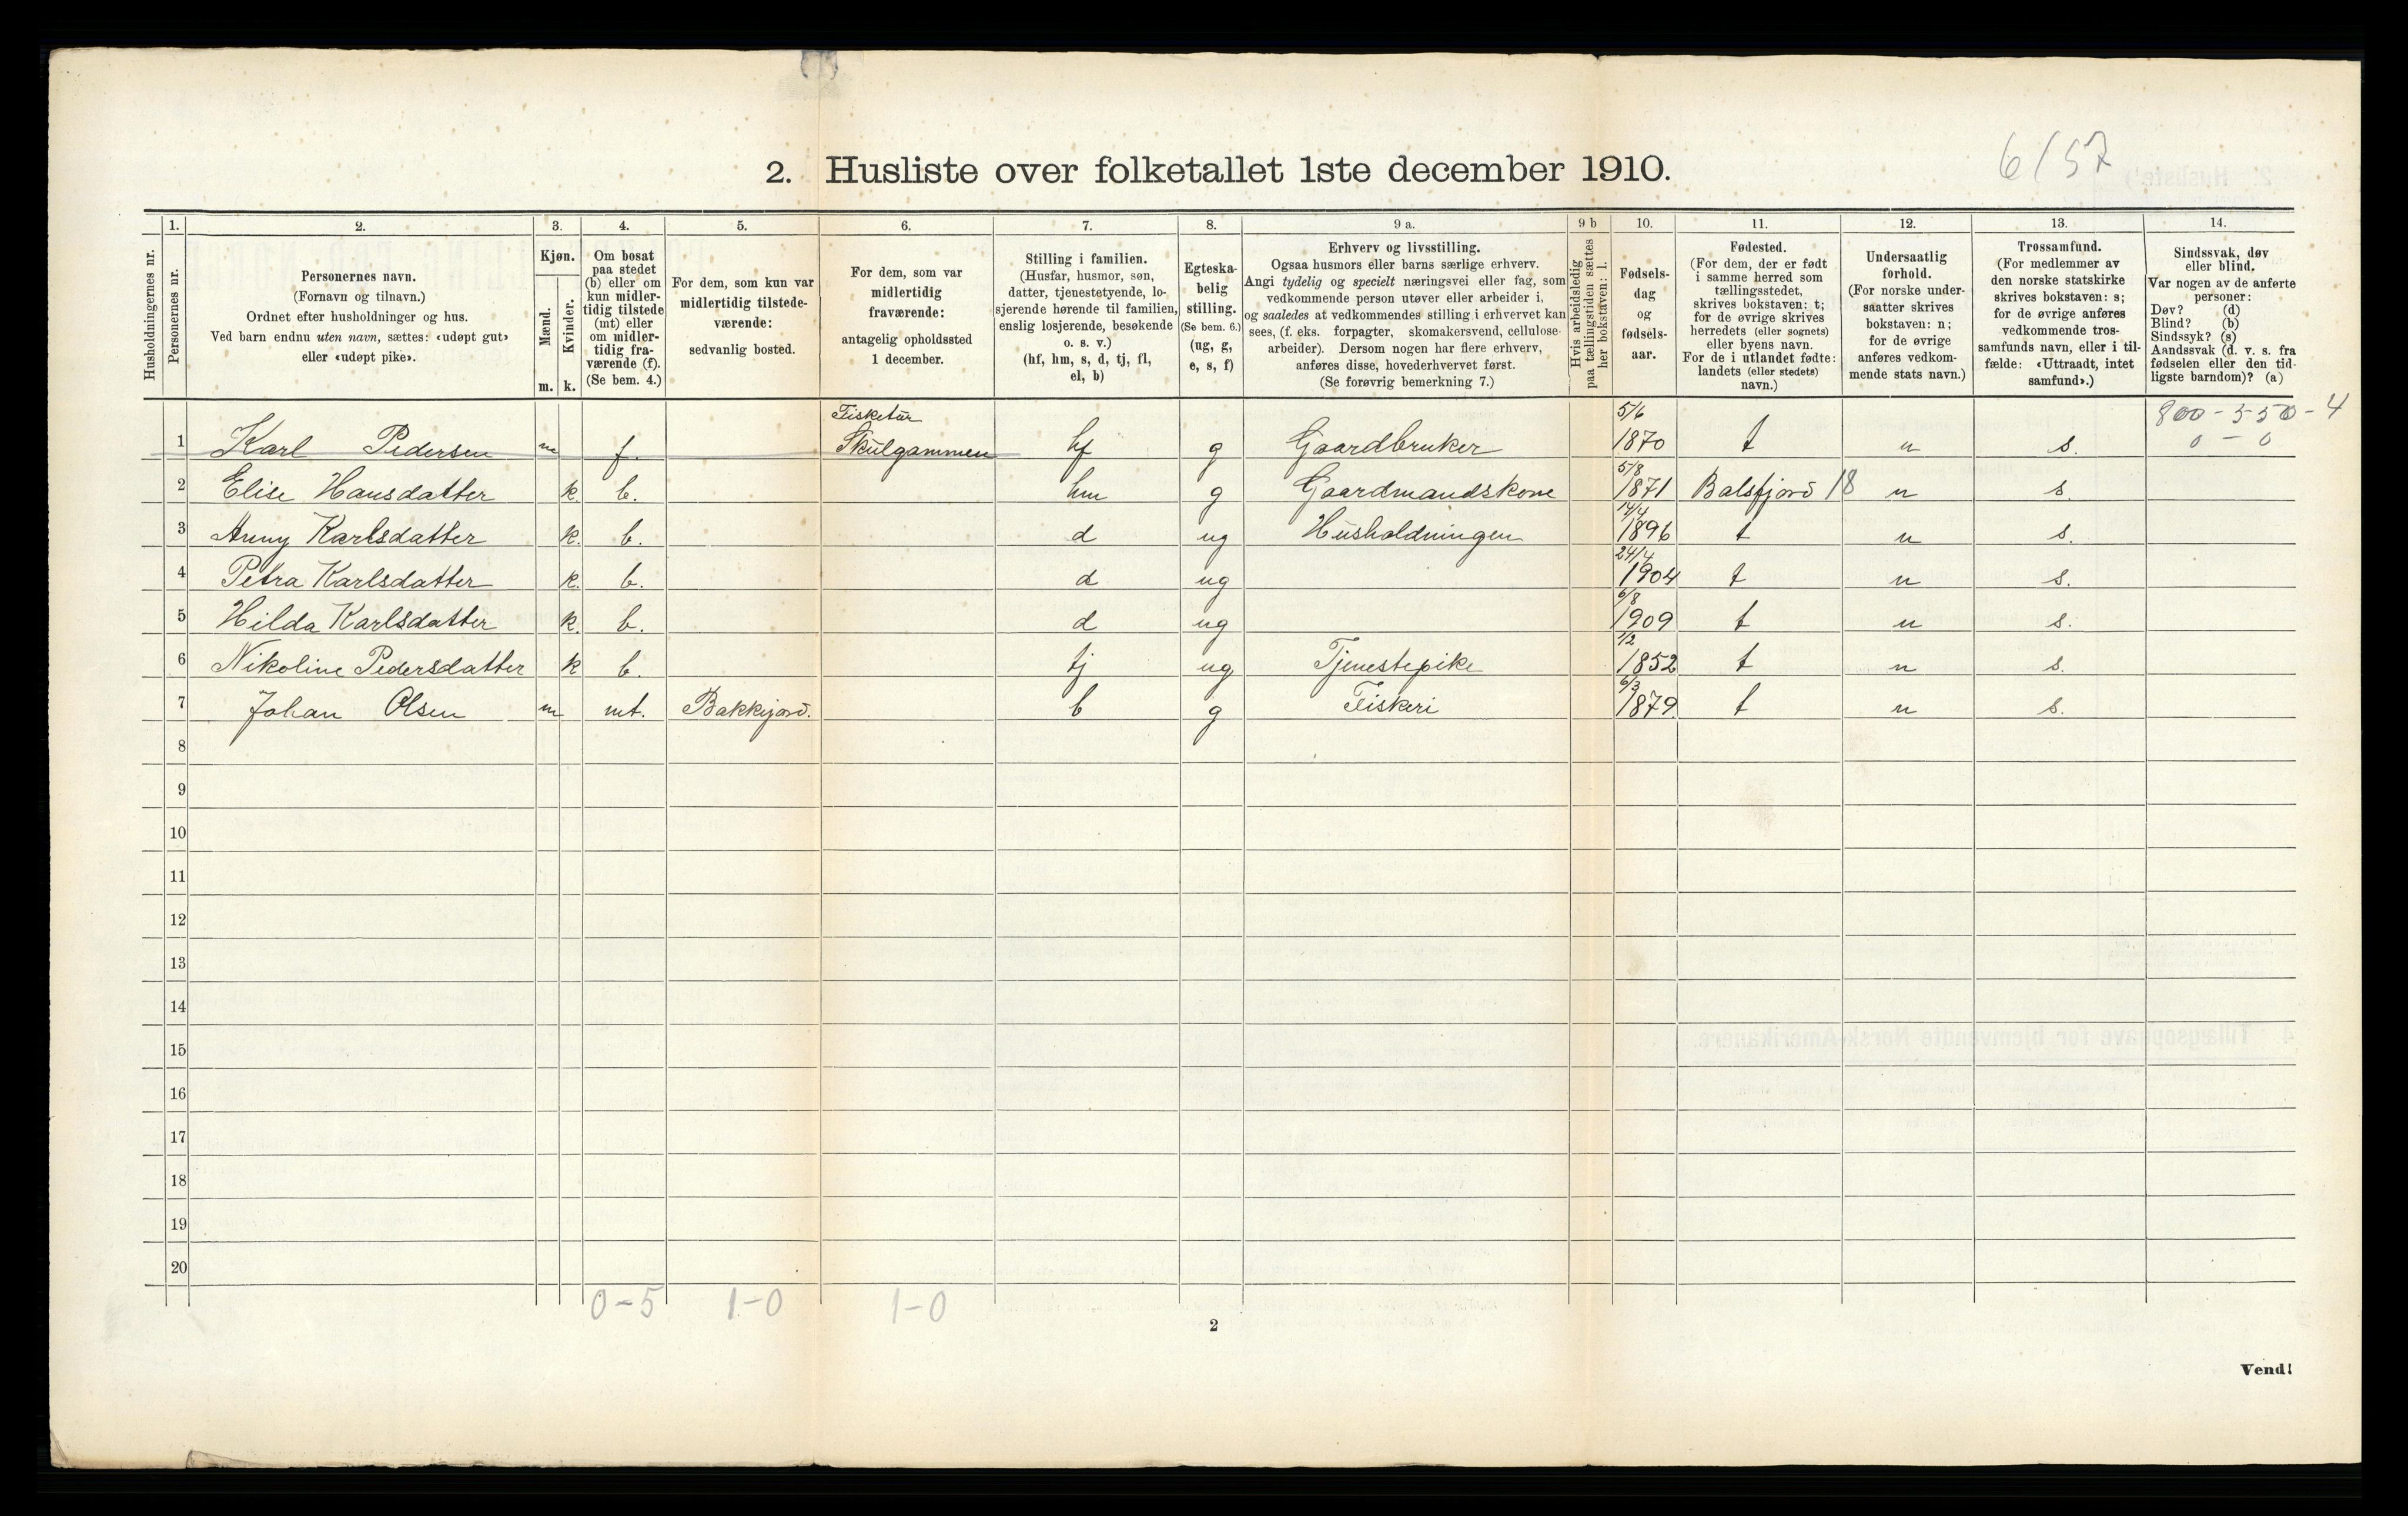 2. Husliste over folketallet 1ste december 1910.
6/57
1. 2. 3. 4. 5. 6. 7. 8. 9 a. 9 b 10. 11. 12. 13. 14.
Husholdningernes nr.
Personernes nr.
Personernes navn.
(Fornavn og tilnavn.)
Ordnet efter husholdninger og hus.
Ved barn endnu uten navn, sættes: «udøpt gut»
eller «udøpt pike».
Kjøn.
Mænd.
Kvinder.
m. k.
Om bosat
paa stedet
(b) eller om
kun midler-
tidig tilstede
(mt) eller
om midler-
tidig fra-
værende (f).
(Se bem. 4.)
For dem, som kun var
midlertidig tilstede-
værende:
sedvanlig bosted.
For dem, som var
midlertidig
fraværende:
antagelig opholdssted
1 december.
Stilling i familien.
(Husfar, husmor, søn,
datter, tjenestetyende, lo-
sjerende hørende til familien,
enslig losjerende, besøkende
o. s. v.)
(hf, hm, s, d, tj, fl,
el, b)
Egteska-
belig
stilling.
(Se bem. 6.)
(ug, g,
e, s, f)
Erhverv og livsstilling.
Ogsaa husmors eller barns særlige erhverv.
Angi tydelig og specielt næringsvei eller fag, som
vedkommende person utøver eller arbeider i,
og saaledes at vedkommendes stilling i erhvervet kan
sees, (f. eks. forpagter, skomakersvend, cellulose-
arbeider). Dersom nogen har flere erhverv,
anføres disse, hovederhvervet først.
(Se forøvrig bemerkning 7.)
Hvis arbeidsledig
paa tællingstiden sættes
her bokstaven: l.
Fødsels-
dag
og
fødsels-
aar.
Fødested.
(For dem, der er født
i samme herred som
tællingsstedet,
skrives bokstaven: t;
for de øvrige skrives
herredets (eller sognets)
eller byens navn.
For de i utlandet fødte:
landets (eller stedets)
navn.)
Undersaatlig
forhold.
(For norske under-
saatter skrives
bokstaven: n;
for de øvrige
anføres vedkom-
mende stats navn.)
Trossamfund.
(For medlemmer av
den norske statskirke
skrives bokstaven: s;
for de øvrige anføres
vedkommende tros-
samfunds navn, eller i til-
fælde: «Uttraadt, intet
samfund».)
Sindssvak, døv
eller blind.
Var nogen av de anførte
personer:
Døv? (d)
Blind? (b)
Sindssyk? (s)
Aandssvak (d. v. s. fra
fødselen eller den tid-
ligste barndom)? (a)
Fisketur 5/6 800 - 550 - 4
1 Karl Pedersen m f. Skulgammen hf g Gaardbruker 1870 t n s. 0 - 0
5/8
2 Elise Hansdatter k. b. hm g Gaardmandskone 1871 Balsfjord 18 n s
14/4
3 Anny Karlsdatter k. b. d ug Husholdningen 1896 t n s.
24/4
4 Petra Karlsdatter k. b. d ug 1904 t n s.
6/8
5 Hilda Karlsdatter k. b. d ug 1909 t n s.
1/2
6 Nikoline Pedersdatter k b. tj ug Tjenestepike 1852 t n s.
6/3
7 Johan Olsen m mt. Bakkejord. b g Fiskeri 1879. t n s.
8
9
10
11
12
13
14
15
16
17
18
19
20
0-5 1-0 1-0
2
Vend!